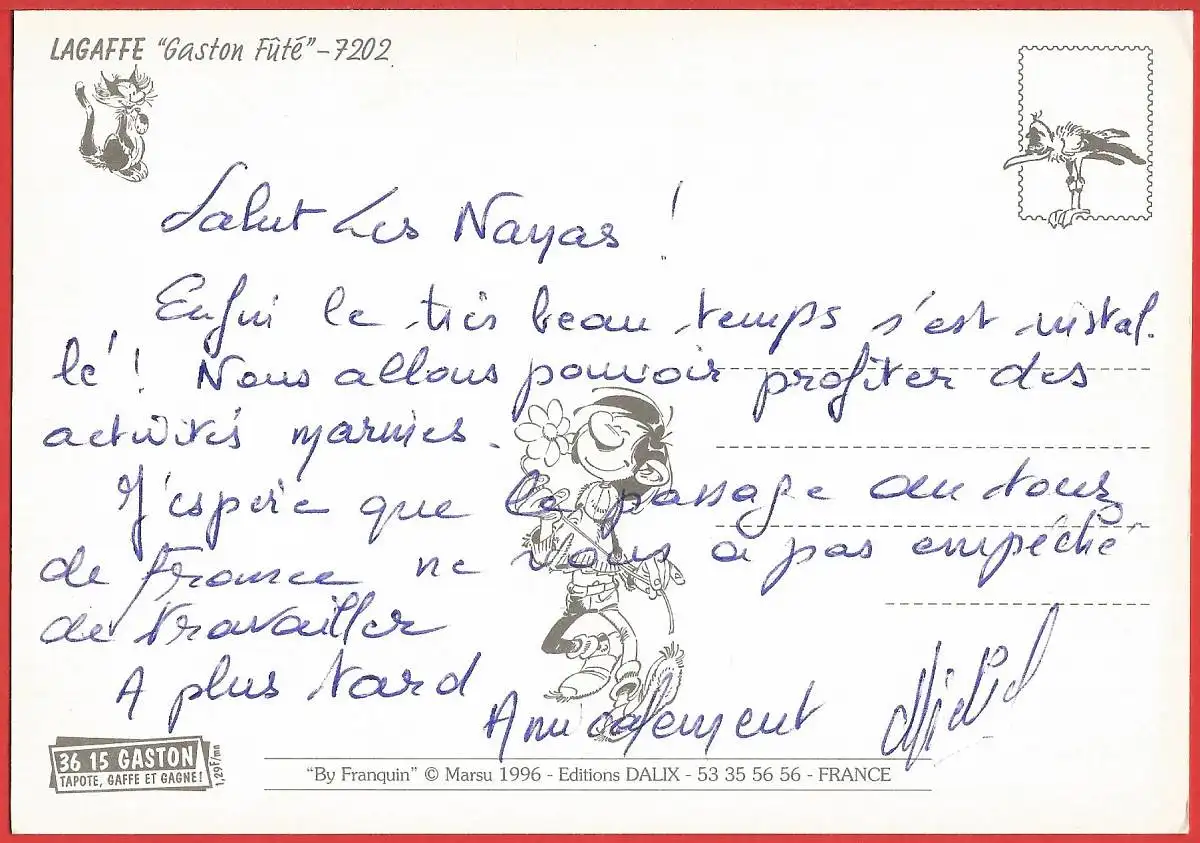 LAGAFFE "Gaston Fûté" - 7202
Salut Les Nayas !
Enfin le très beau temps s'est instal.
lé ! Nous allons pouvoir profiter des
activités marines.
J'espère que le passage du tour
de France ne vous a pas empêché
de travailler
A plus tard
Amicalement
36 15 GASTON
TAPOTE, GAFFE ET GAGNE!
1,29F/mn
"By Franquin" © Marsu 1996 - Editions DALIX - 53 35 56 56 - FRANCE